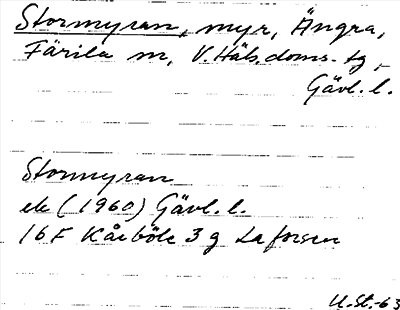 Stormyran, myr, Ängra,
Färila sn, V. Häls. doms. tg,
Gävl. l.
Stormyran
ek (1960) Gävl. l.
16F Kårböle 3 g Laforsen
U. St. -63